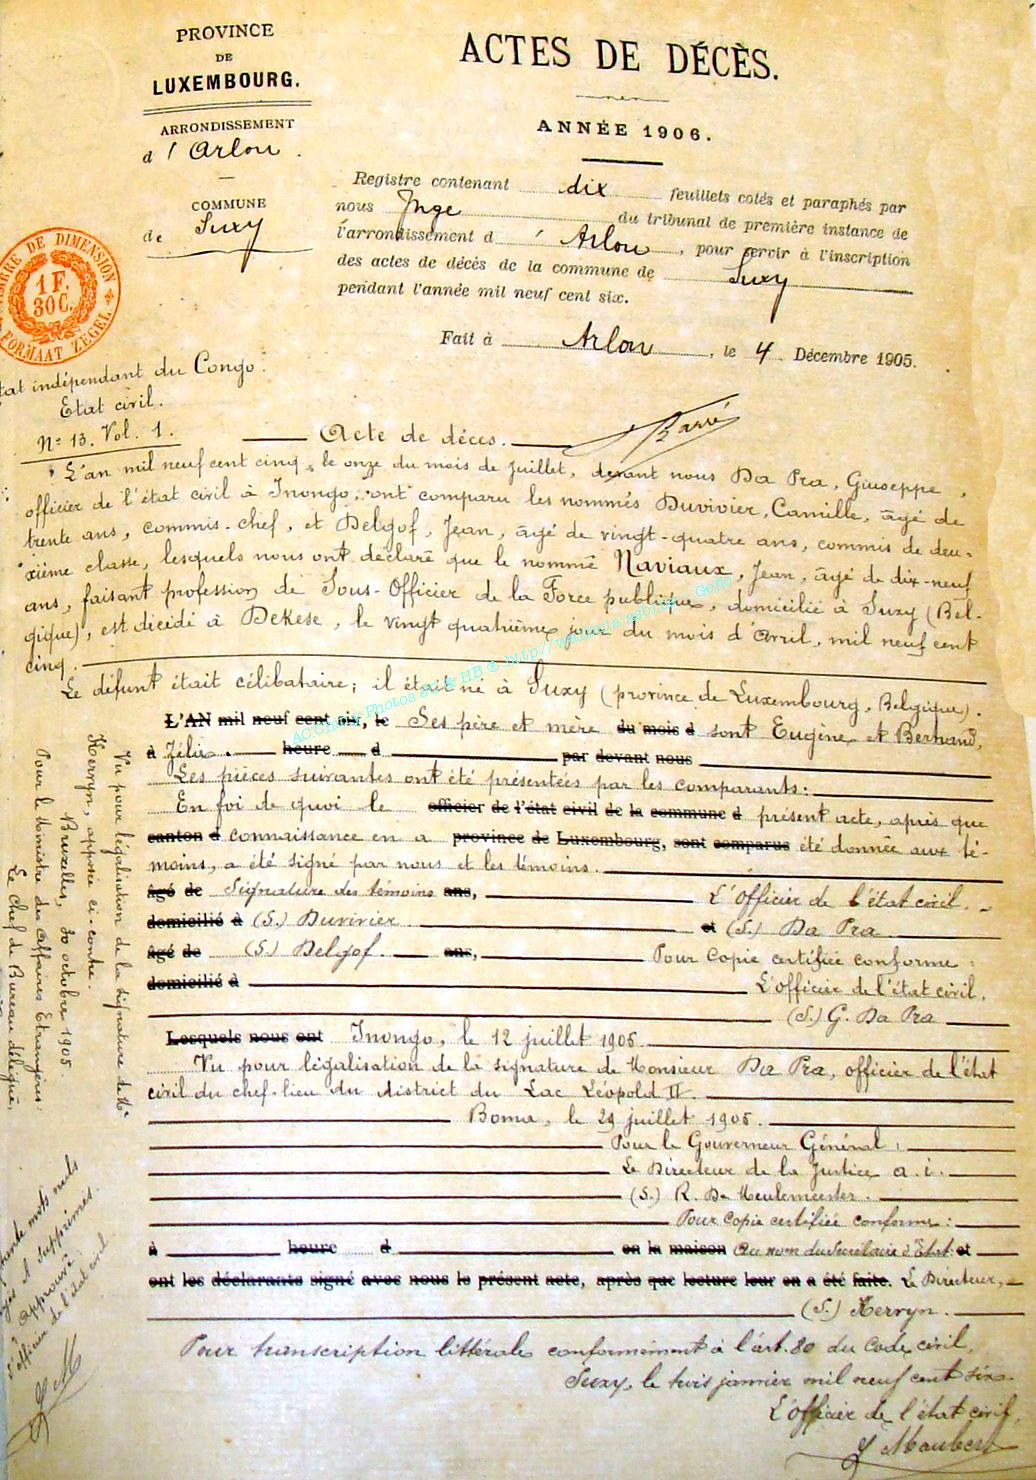 PROVINCE
DE
LUXEMBOURG.
ARRONDISSEMENT
d'Arlon.
COMMUNE
de Suxy
TIMBRE DE DIMENSION
1 F.
30 C.
FORMAAT ZEGEL
ACTES DE DÉCÈS.
ANNÉE 1906.
Registre contenant dix feuillets cotés et paraphés par
nous Juge du tribunal de première instance de
l'arrondissement d'Arlon, pour servir à l'inscription
des actes de décès de la commune de Suxy
pendant l'année mil neuf cent six.
Fait à Arlon, le 4 Décembre 1905.
Etat indépendant du Congo.
Etat civil.
N° 13. Vol. 1.
Acte de décès.
L'an mil neuf cent cinq, le onze du mois de juillet, devant nous Da Pra, Giuseppe,
officier de l'état civil à Inongo, ont comparu les nommés Duvivier, Camille, âgé de
trente ans, commis-chef, et Delgof, Jean, âgé de vingt-quatre ans, commis de deu-
xième classe, lesquels nous ont déclaré que le nommé Naviaux, Jean, âgé de dix-neuf
ans, faisant profession de Sous-Officier de la Force publique, domicilié à Suxy (Bel-
gique), est décédé à Dekese, le vingt quatrième jour du mois d'Avril, mil neuf cent
cinq.
Le défunt était célibataire; il était né à Suxy (province de Luxembourg, Belgique).
L'AN mil neuf cent six, le Ses père et mère du mois d sont Eugène et Bernand,
à Félix. heure d par devant nous
Les pièces suivantes ont été présentées par les comparants:
En foi de quoi le officier de l'état civil de la commune d présent acte, après que
canton d connaissance en a province de Luxembourg, sont comparus été donnée aux té-
moins, a été signé par nous et les témoins.
âgé de Signature des témoins ans, L'Officier de l'état civil.
domicilié à (S.) Duvivier et (S.) Da Pra
âgé de (S.) Delgof. ans, Pour Copie certifiée conforme:
domicilié à L'officier de l'état civil.
(S.) G. Da Pra
Lesquels nous ont Inongo, le 12 juillet 1905.
Vu pour légalisation de la signature de Monsieur Da Pra, officier de l'état
civil du chef-lieu du district du Lac Léopold II.
Boma, le 29 juillet 1905.
Pour le Gouverneur Général:
Le Directeur de la Justice a.i.
(S.) R. De Meulemeester.
Pour copie certifiée conforme:
à heure d en la maison Au nom du Secrétaire d'Etat: et
ont les déclarants signé avec nous le présent acte, après que lecture leur en a été faite. Le Directeur,
(S.) Kerryn.
Pour transcription littérale conformément à l'art. 80 du Code civil,
Suxy, le trois janvier mil neuf cent six.
L'Officier de l'état civil,
Maubert
Vu pour légalisation de la signature de Mr
Kerryn, apposée ci-contre.
Bruxelles, 30 octobre 1905
Pour le Ministre des Affaires Etrangères:
Le Chef de Bureau délégué,
mots nuls
et supprimés.
Approuvé
L'officier de l'état civil